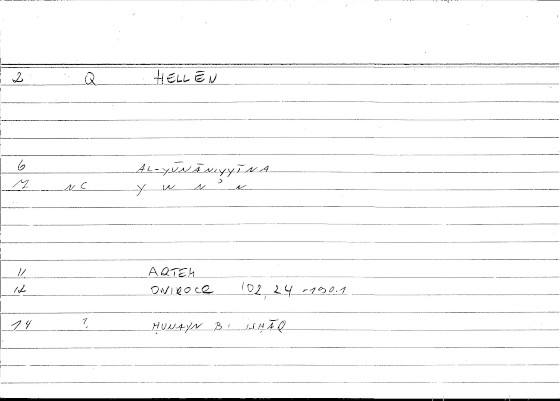 2 Q HELLĒN
6 AL-YŪNĀNIYYĪNA
7 NC Y W N ʾ N
11 ARTEM
12 ONIROCR 102, 24 -190.1
14 ? ḤUNAYN B. ISḤĀQ